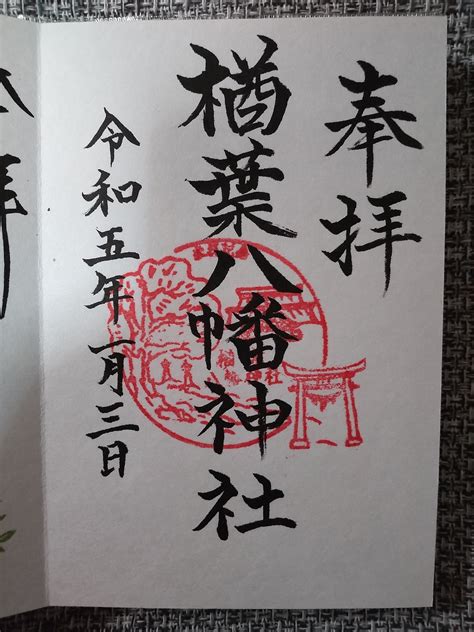 奉拝
楢葉八幡神社
令和五年一月三日
拝